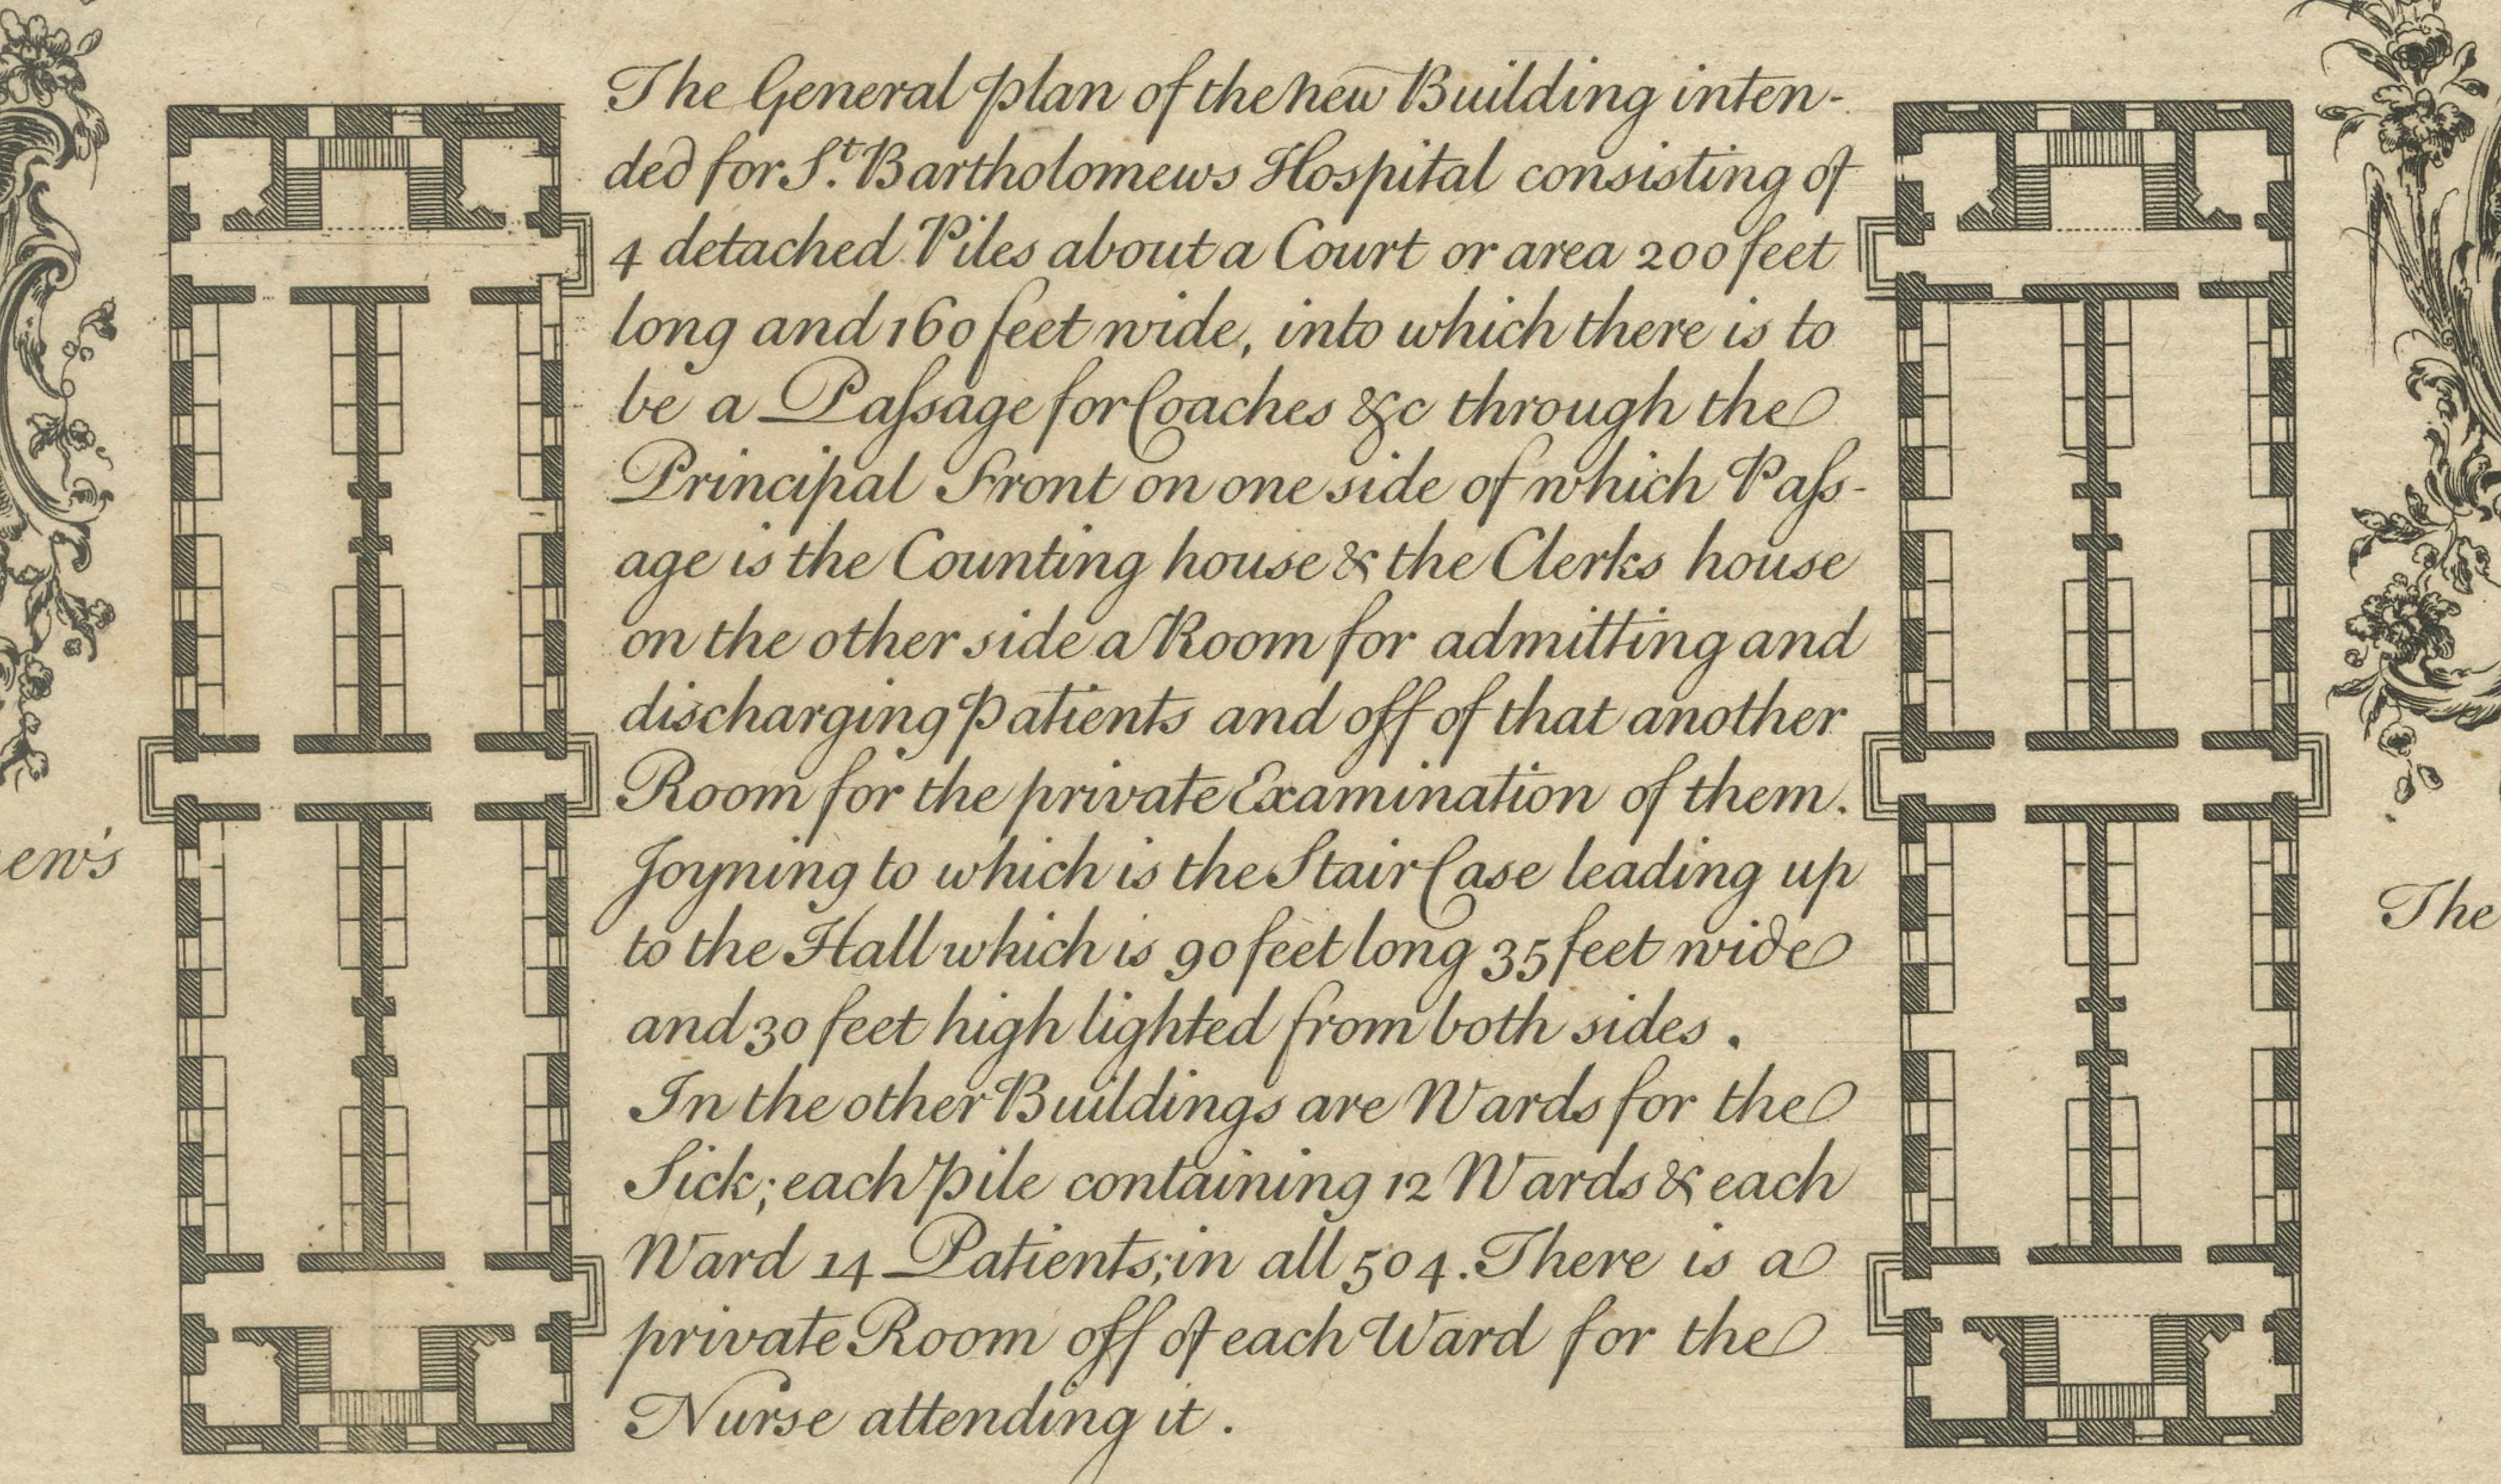 The General plan of the new Building inten-
ded for St. Bartholomews Hospital consisting of
4 detached Piles about a Court or area 200 feet
long and 160 feet wide, into which there is to
be a Paſsage for Coaches &c through the
Principal Front on one side of which Paſs-
age is the Counting house & the Clerks house
on the other side a Room for admitting and
discharging Patients and off of that another
Room for the private Examination of them.
Joyning to which is the Stair Case leading up
to the Hall which is 90 feet long 35 feet wide
and 30 feet high lighted from both sides.
In the other Buildings are Wards for the
Sick; each pile containing 12 Wards & each
Ward 14 Patients; in all 504. There is a
private Room off of each Ward for the
Nurse attending it.
ew's
The